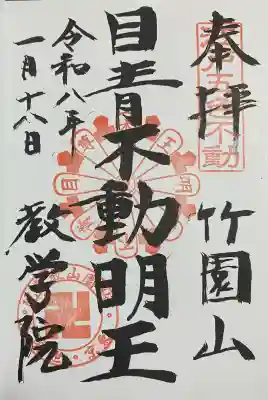 奉拝
竹園山
目青不動明王
令和八年
一月十八日
教学院